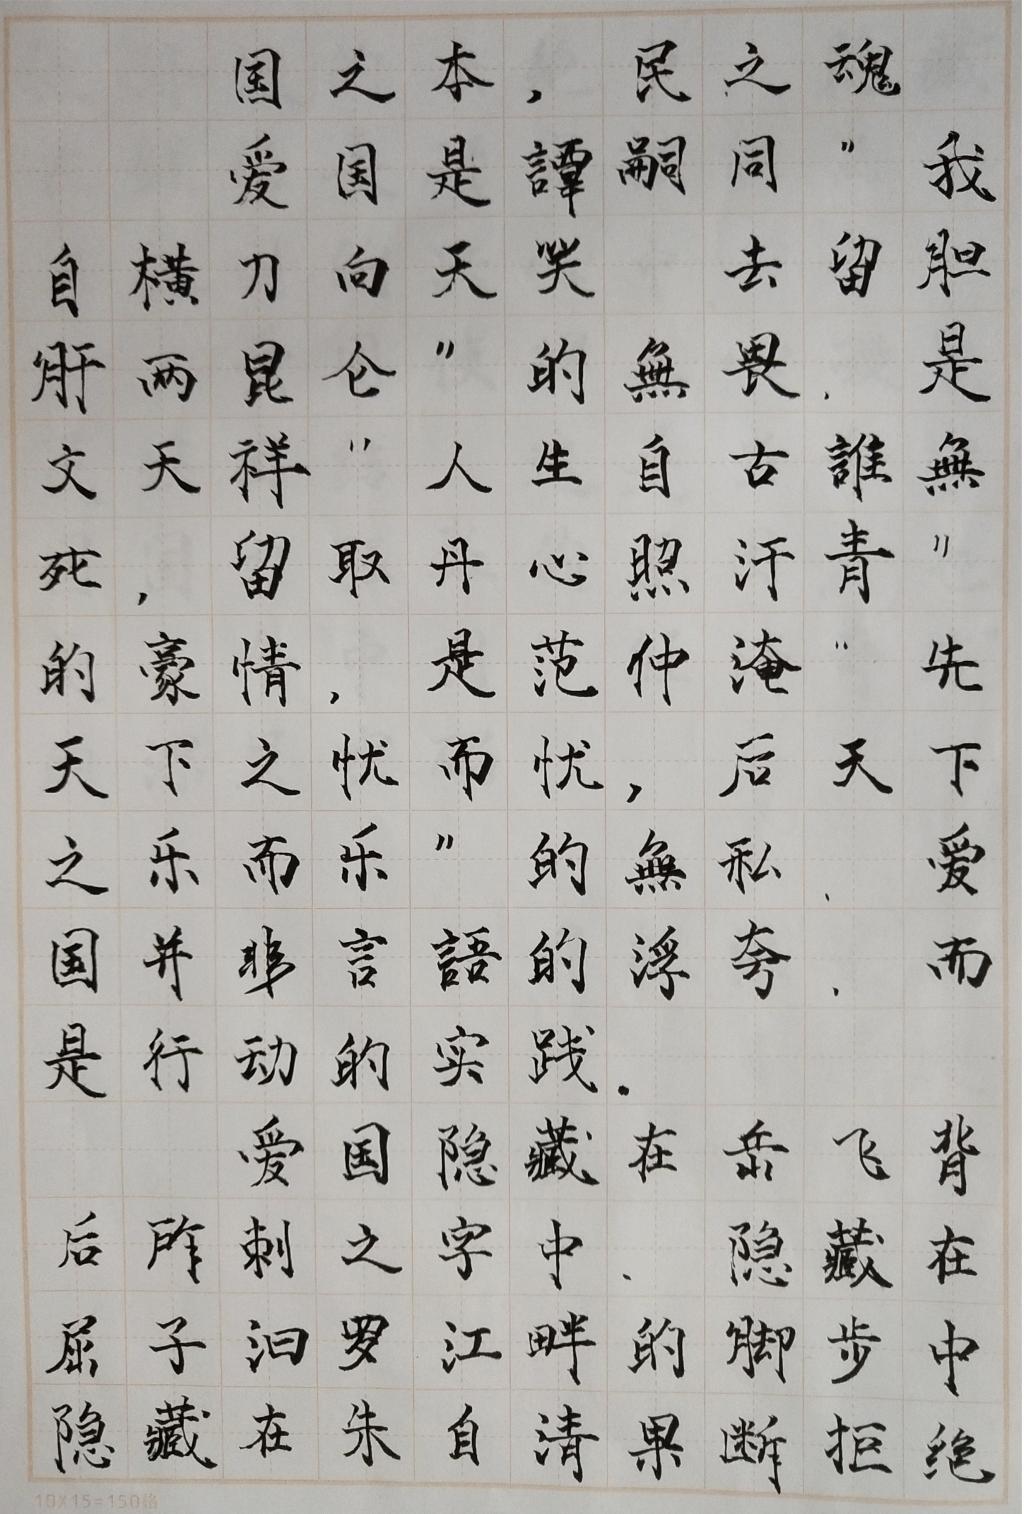 国之本，民之魂
爱国是譚嗣同"我
自横刀向天笑 去留胆
肝两昆仑"的無畏、是
文天祥"人生自古誰無
死，留取丹心照汗青"
的豪情，是范仲淹"先
天下之忧而忧，后天下
之乐而乐"的無私、爱
国并非言語的浮夸、而
是行动的实践.
爱国隐藏在岳飞背
后所刺之字中、隐藏在
屈子汩罗江畔的脚步中
隐藏在朱自清果断拒绝
10X15=150格